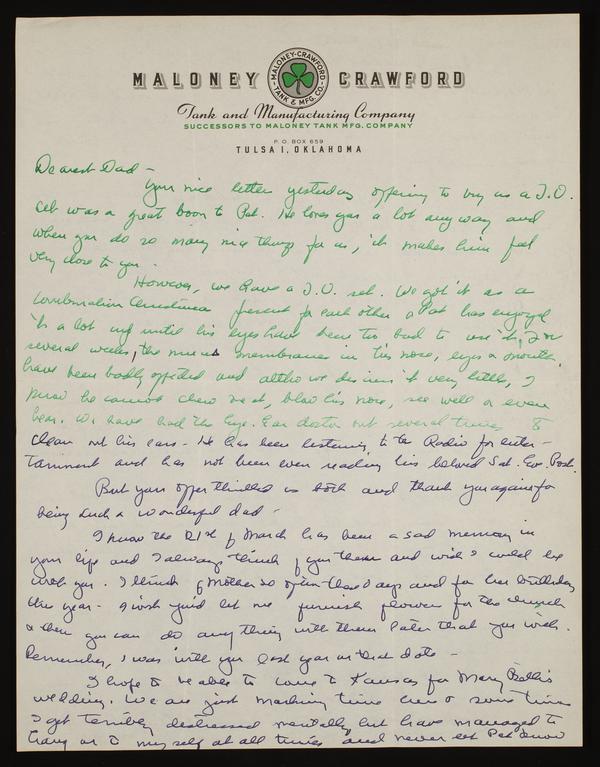 MALONEY CRAWFORD
MALONEY-CRAWFORD TANK & MFG. CO.
Tank and Manufacturing Company
SUCCESSORS TO MALONEY TANK MFG. COMPANY
P. O. BOX 659
TULSA 1, OKLAHOMA
Dearest Dad -
Your nice letter yesterday offering to buy us a T.V.
set was a great boon to Pat. He loves you a lot anyway and
when you do so many nice things for us, it makes him feel
very close to you.
However, we have a T.V. set. We got it as a
combination Christmas present for each other & Pat has enjoyed
it a lot up until his eyes have been too bad to use it. For
several weeks, the mucus membranes in his nose, eyes & mouth
have been badly affected and altho we discuss it very little, I
know he cannot chew meat, blow his nose, see well or even
hear. We have had the Eye-Ear doctor out several times to
clean out his ears - He has been listening to the Radio for enter-
tainment and has not been even reading his beloved Sat. Eve. Post.
But your offer thrilled us both and thank you again for
being such a wonderful dad -
I know the 21st of March has been a sad memory in
your life and I always think of you then and wish I could be
with you. I think of Mother so often these days and for her birthday
this year - I wish you'd let me furnish flowers for the church
& then you can do anything with them later that you wish.
Remember, I was with you last year on that date -
I hope to be able to come to Kansas for Mary
wedding. We are just marking time here & some times
I get terribly distressed mentally but have managed to
hang on to myself at all times and never let Pat know